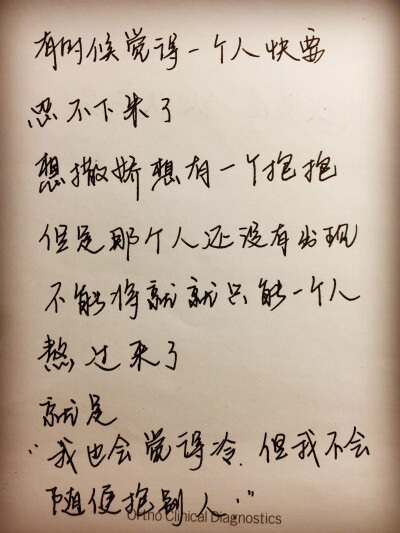 有时候觉得一个人快要
忍不下来了
想撒娇想有一个抱抱
但是那个人还没有出现
不能将就就只能一个人
熬过来了
就是
“我也会觉得冷.但我不会
随便抱别人.”
Ortho Clinical Diagnostics